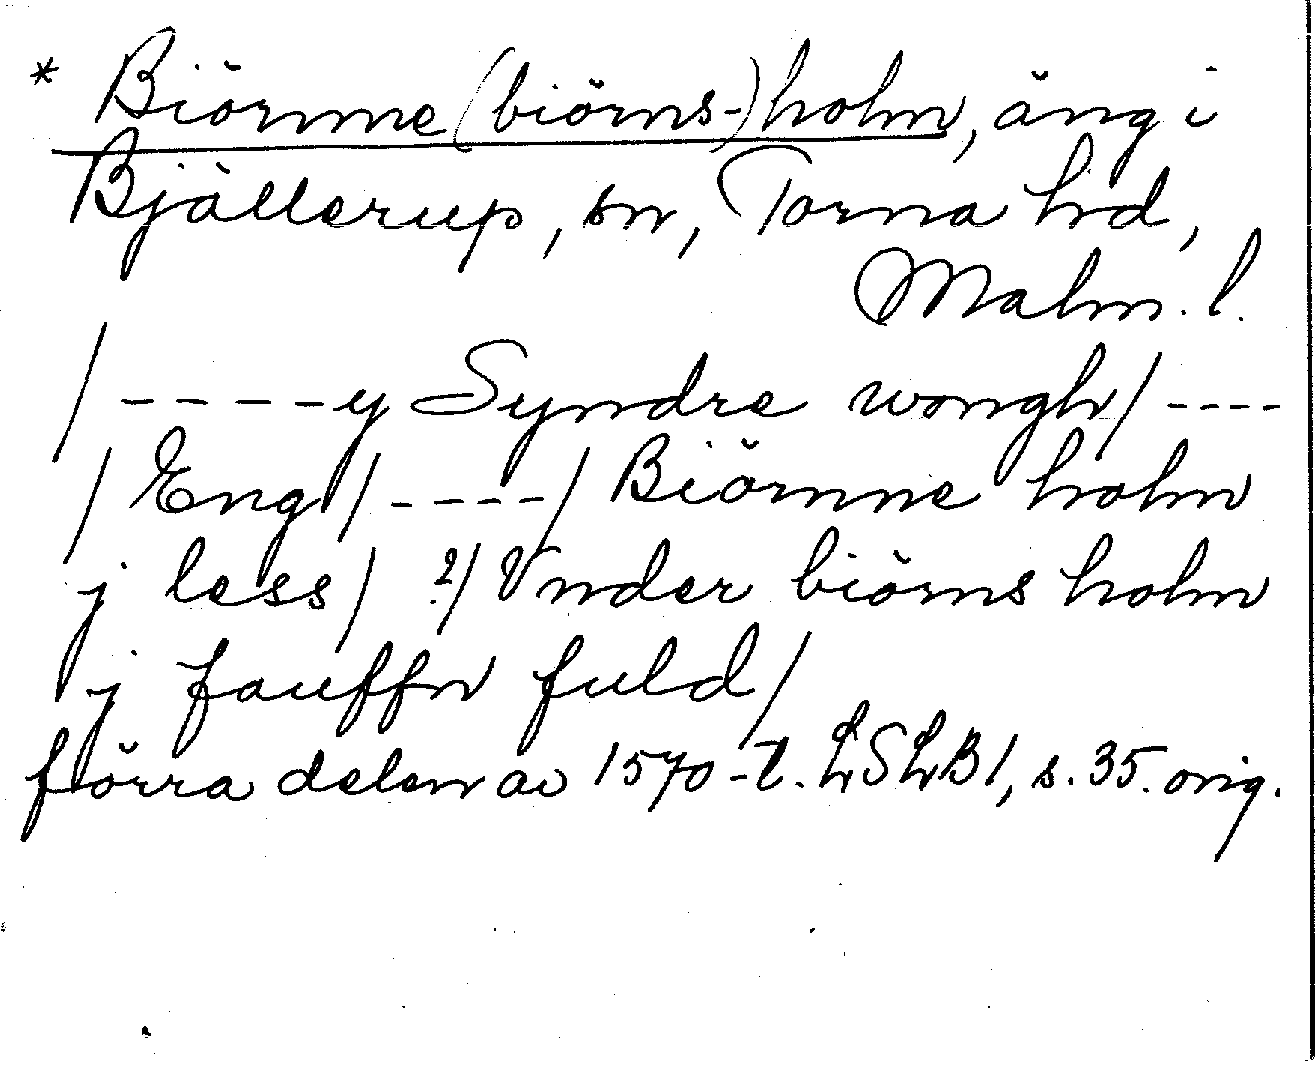 * Biörnne (biörns-)holm, äng i
Bjällerup, sn, Torna hd,
Malm. l.
/----y Syndre wongh/----
/Eng/----/Biörnne holm
j less/ ?/Vnder biörns holm
j fauffn fuld/
förra delen av 1570-t. LSLB1, s. 35. orig.